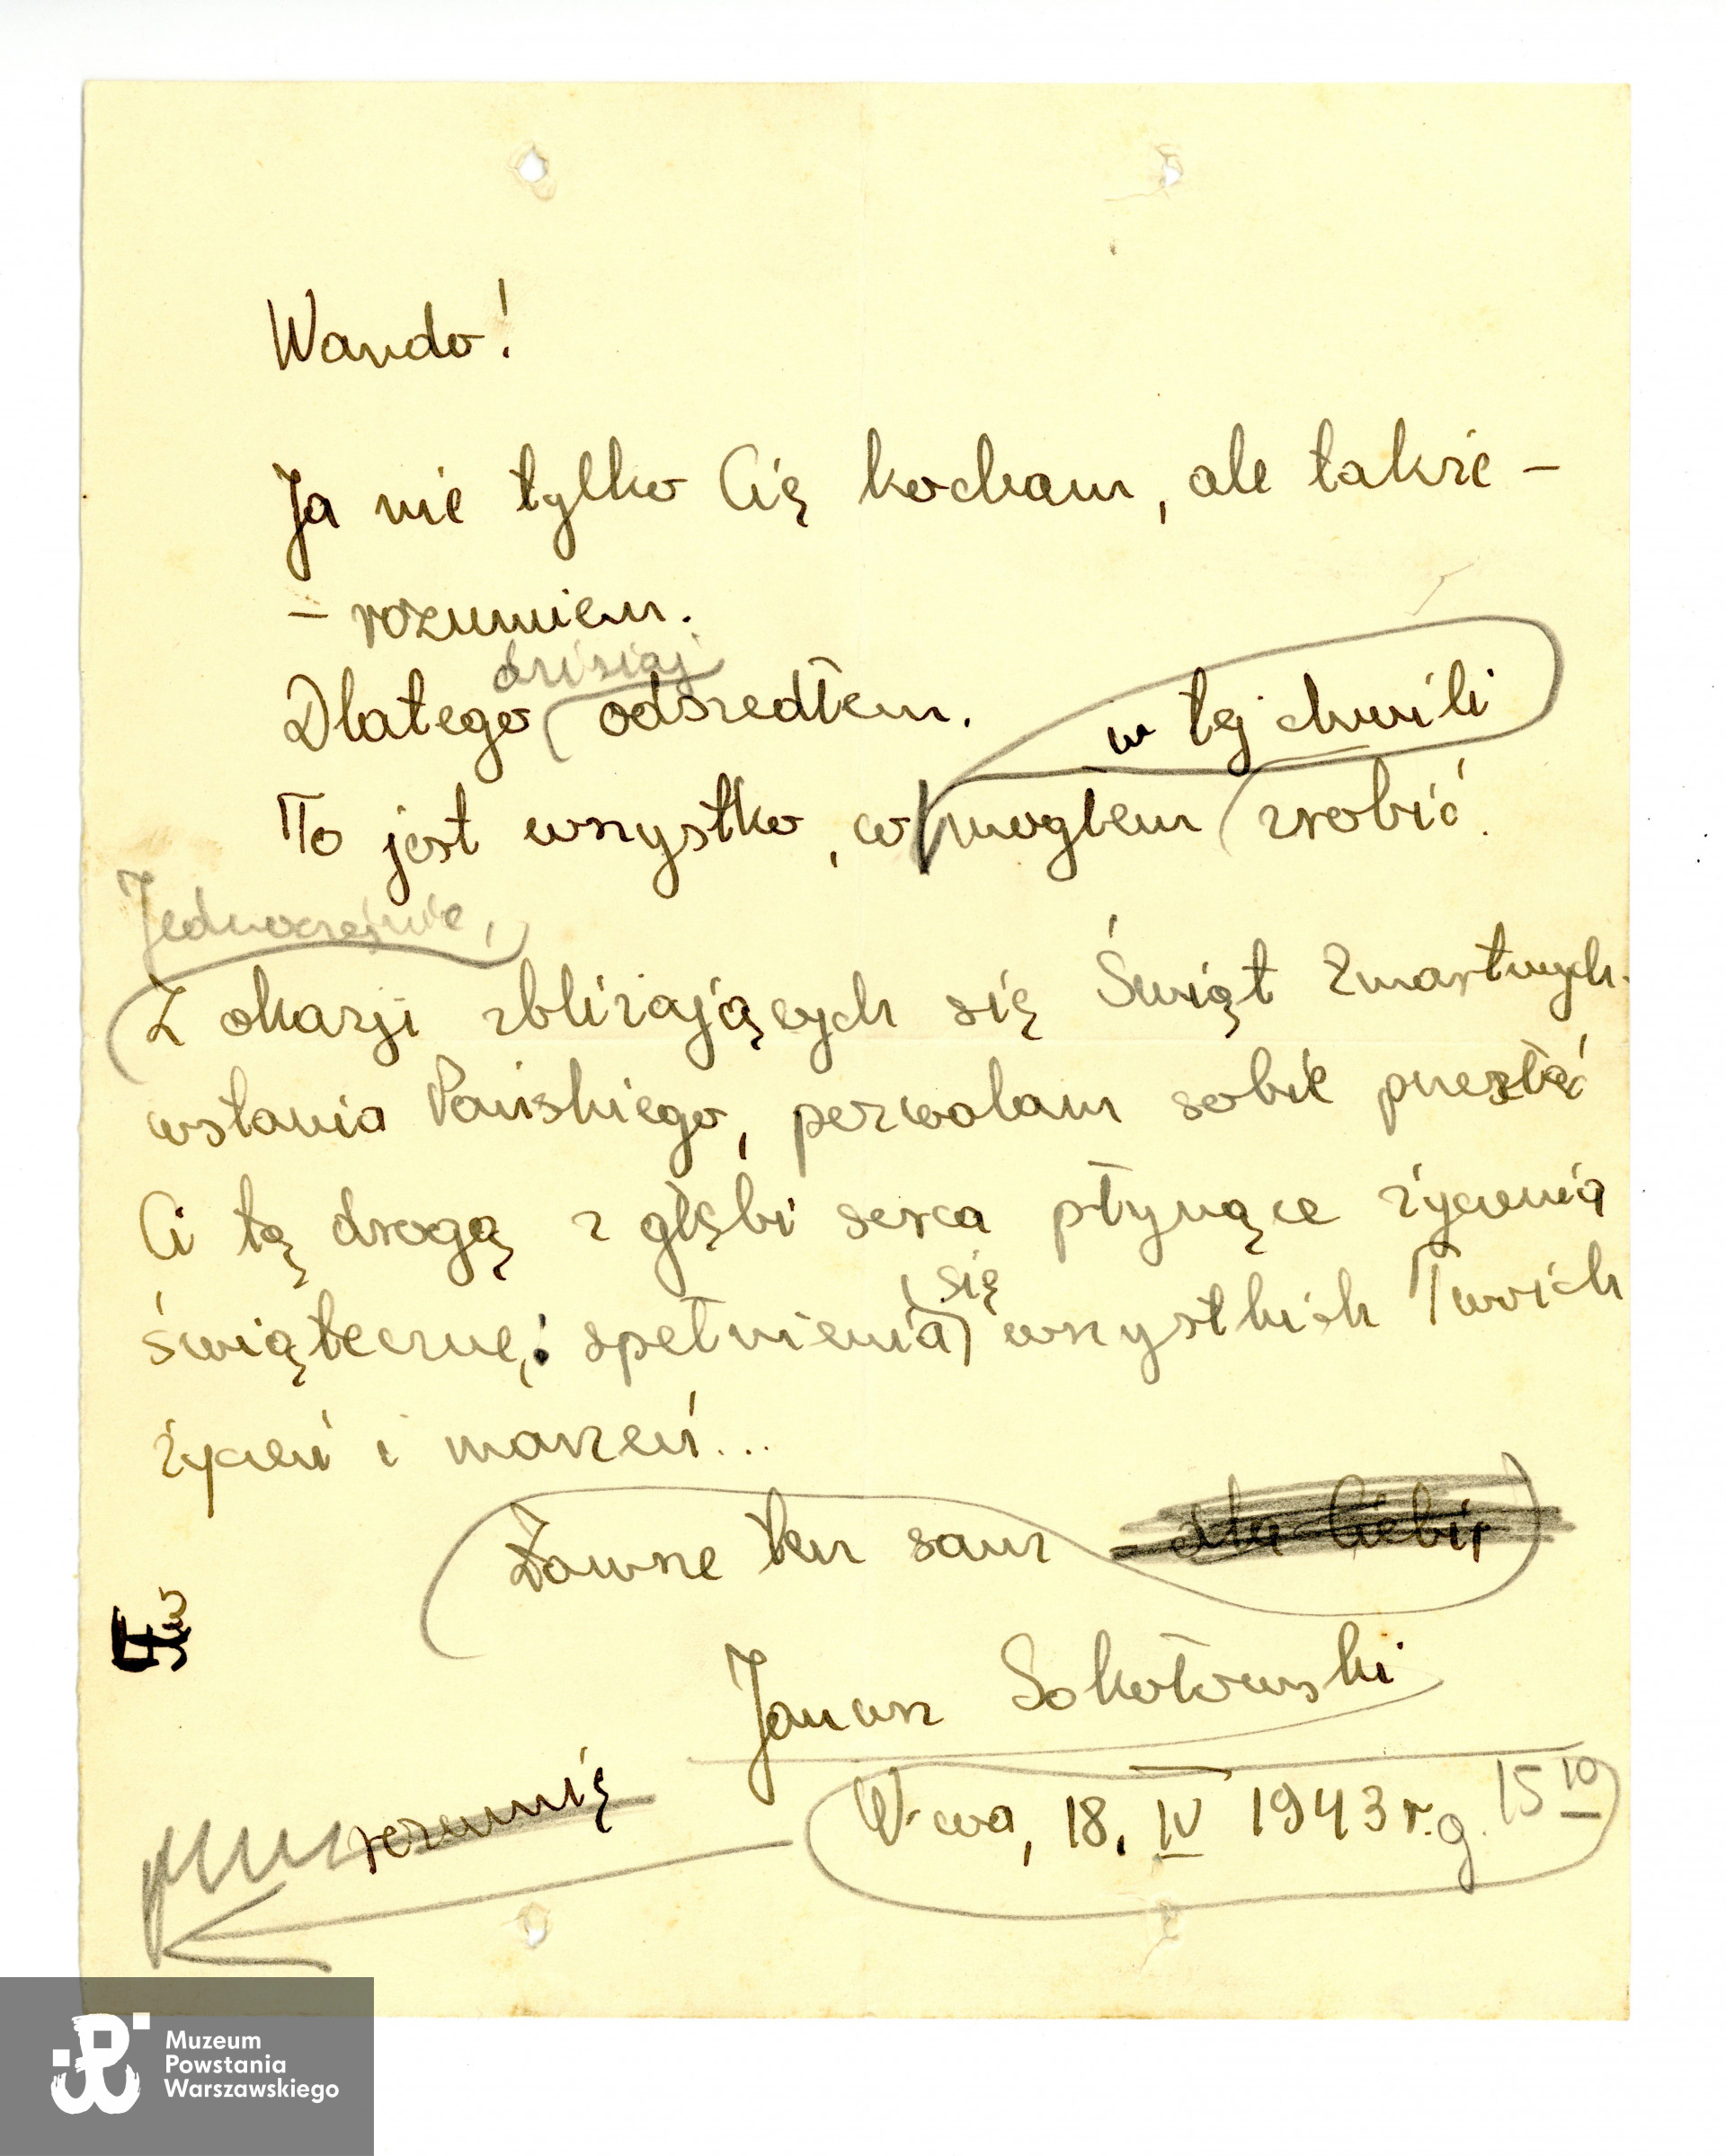 Wando!
Ja nie tylko Cię kocham, ale także –
– rozumiem.
dzisiaj
Dlatego odszedłem.
w tej chwili
To jest wszystko, co mogłem zrobić.
Jednocześnie,
Z okazji zbliżających się Świąt Zmartwych-
wstania Pańskiego, pozwalam sobie przesłać
Ci tą drogą z głębi serca płynące życzenia
się
świąteczne, i spełnienia wszystkich Twoich
życzeń i marzeń...
Zawsze ten sam – dla Ciebie
Janusz Sokołowski
W-wa, 18. IV 1943 r. g. 15 10
rozumię
Muzeum
Powstania
Warszawskiego